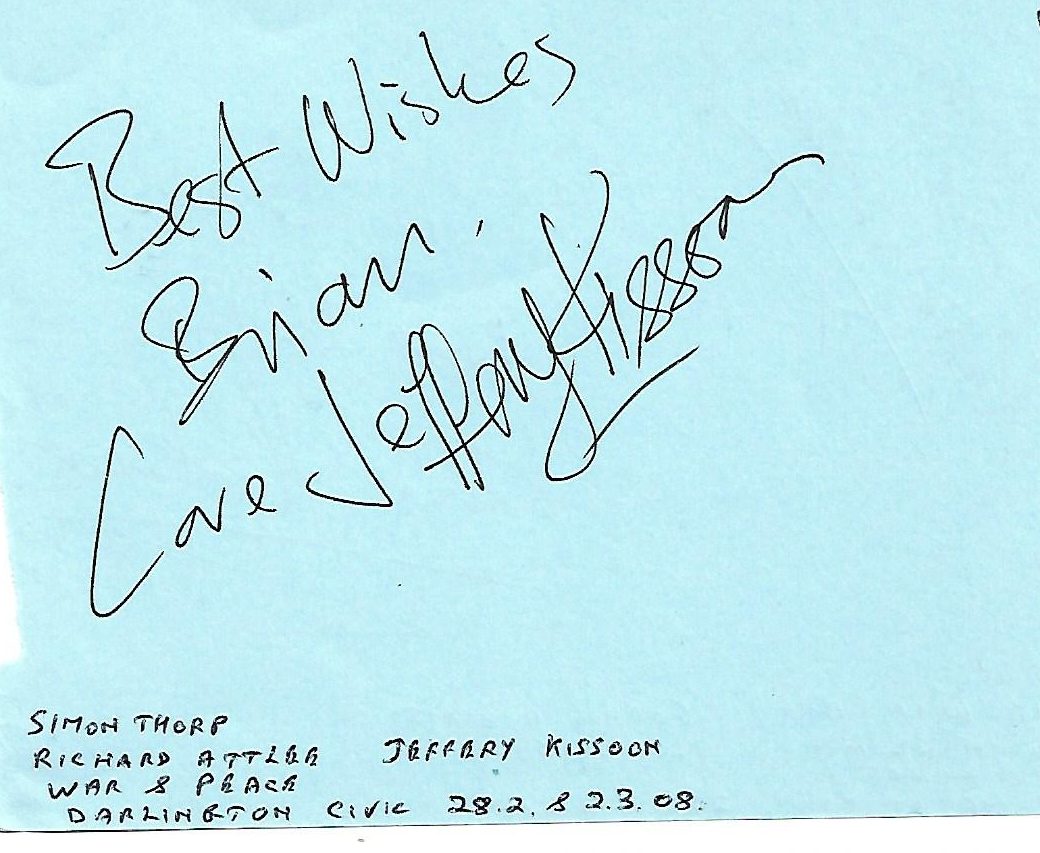 Best Wishes
Brian.
Love Jeffery Kissoon
SIMON THORP
RICHARD ATTLEE JEFFERY KISSOON
WAR & PEACE
DARLINGTON CIVIC 28.2. & 2.3.08.